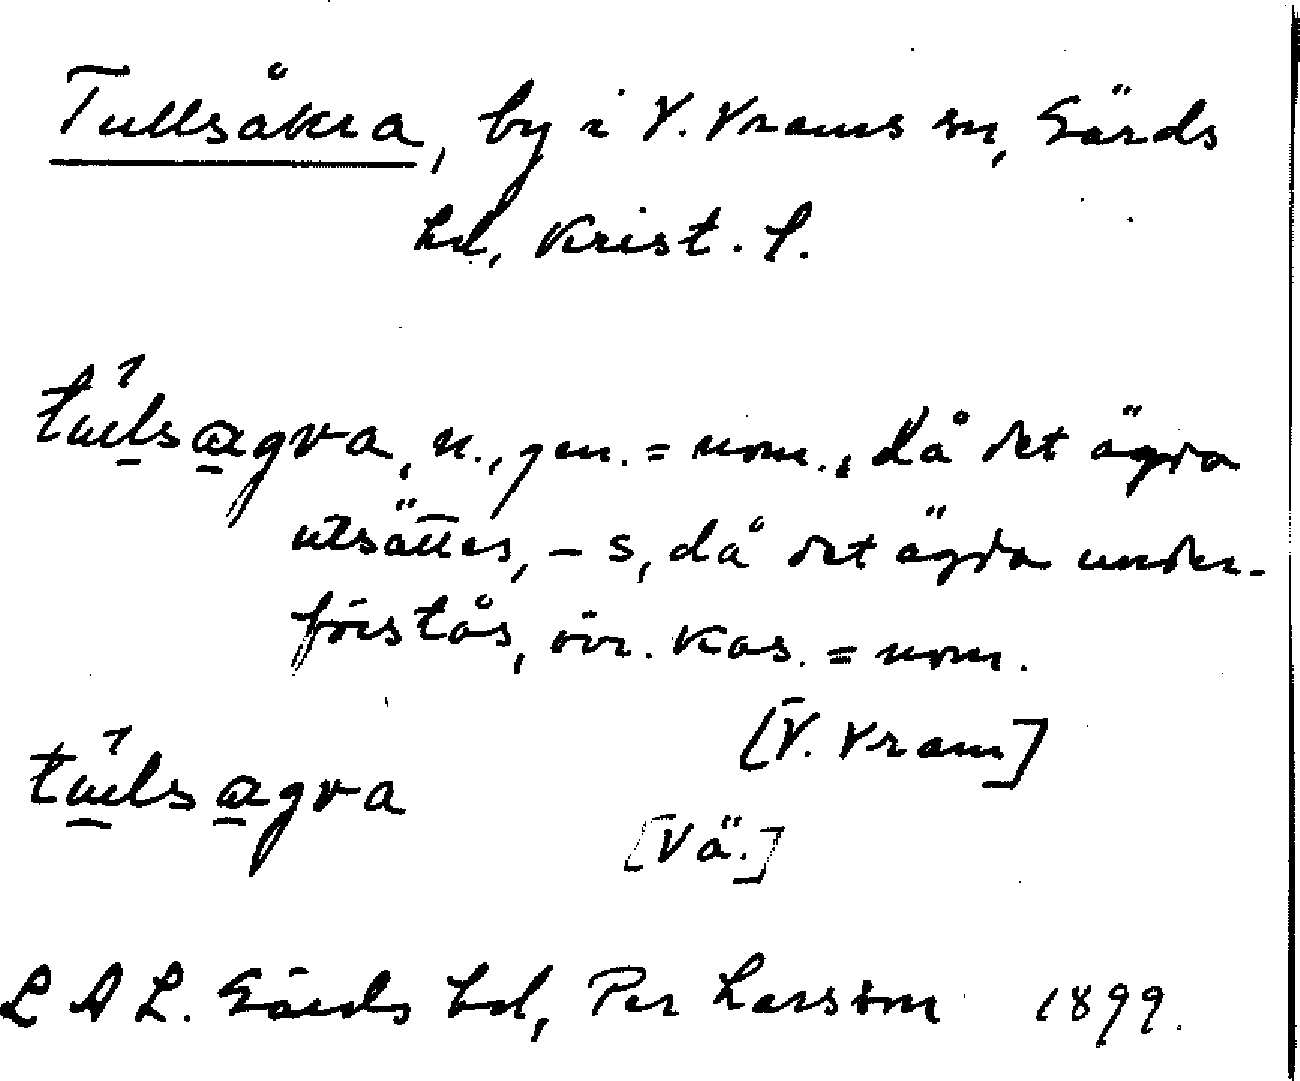 Tullsåkra, by i V. Vrams sn, Gärds
hd, Krist. l.
tulsagva, n., gen. = nom., då det ägda
utsättes, – s, då det ägda under-
förstås, övr. kas. = nom.
[V. Vram]
tulsagva
[Vä.]
L A L. Gärds hd, Per Larsson 1899.